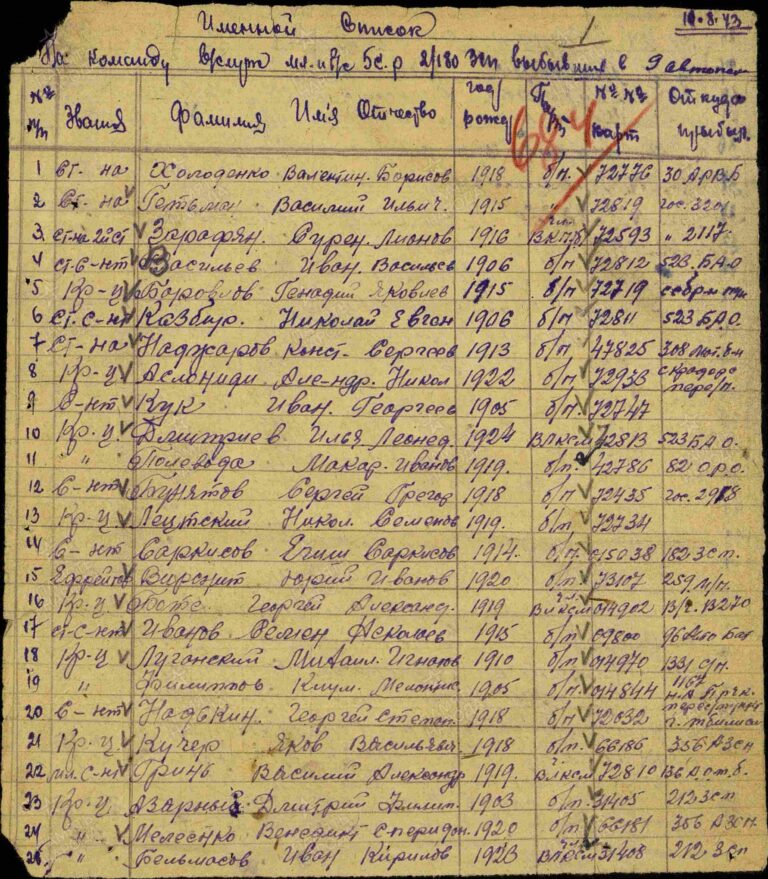 Именной Список
19.8.43
На команду в/службе мл. н/с 5 с.р 2/180 Зсп выбывших в 9 автополк
№№ п/п Звания Фамилия Имя Отчество год рожд №№ карт Откуда прибыл.
684
1 Ст-на Холоденко Валентин. Борисов 1918 б/п. 72776 30 АРВБ
2 Ст-на Гетьман Василий Ильич. 1915 " 72819 гос. 3201
3 Зарафян. Сурен. Лионов 1916 ВКПб 72593 " 2117
4 ст. с-нт Васильев Иван. Васильев 1906 б/п 72812 523 БАО
5 Кр-ц Боровлов Генадий Яковлев 1915 б/п 72719
6 Ст. с-нт Казбир. Николай Евген 1906 б/п 72811 523 БАО.
7 Ст-на Наджаров Конст. Сергеев 1913 б/п 47825 308
8 Кр-ц Аслониди Але-ндр. Никол 1922 б/п. 72933
9 С-нт Кук Иван. Георгиев 1905 б/п. 72747
10 Кр.ц. Дмитриев Илья Леонед. 1924 ВЛКСМ 72813 523 БАО.
11 " Полевода Макар. Иванов 1919. б/п. 42786 82 О.Р.О.
12 С-нт Бунятов Сергей Грегор 1918 б/п 72435 гос. 2918
13 Кр-ц Лецтский Никол. Семенов 1919. б/п. 72734
14 С-нт Саркисов Егиш Саркисов 1914. б/п. 015038 182 Зсп.
15 Ефрейтов Юрий Иванов 1920 б/п 73107 259
16 Кр-ц Боте. Георгий Александ. 1919 ВЛКСМ 014902 В/ч. 13270
17 ст-с-нт Иванов Семен 1915 б/п 09800 96 Авто Бат
18 Кр-ц Луганский Михаил. Игнатов 1910 б/п 014970 1331 с/п.
19 " Филиппов Клим. 1905 б/п 014844 1167
20 С-нт Надькин. Георгий Степан. 1918 б/п 72032
21 Кр.ц Кучер Яков Васильевич. 1918 б/п. 66186 356 АЗсп
22 мл. с-нт Гринь Василий Александр 1919. ВЛКСМ 72810 136 А.ст.б.
23 Кр-ц Азарный Дмитрий Филип. 1903 б/п. 31405 212 Зсп
24 " Мелесико Венедикт Спередон. 1920 б/п 66181 356 АЗсп.
25 " Бельмасов Иван Кирилов 1923 ВЛКСМ 31408 212 Зсп